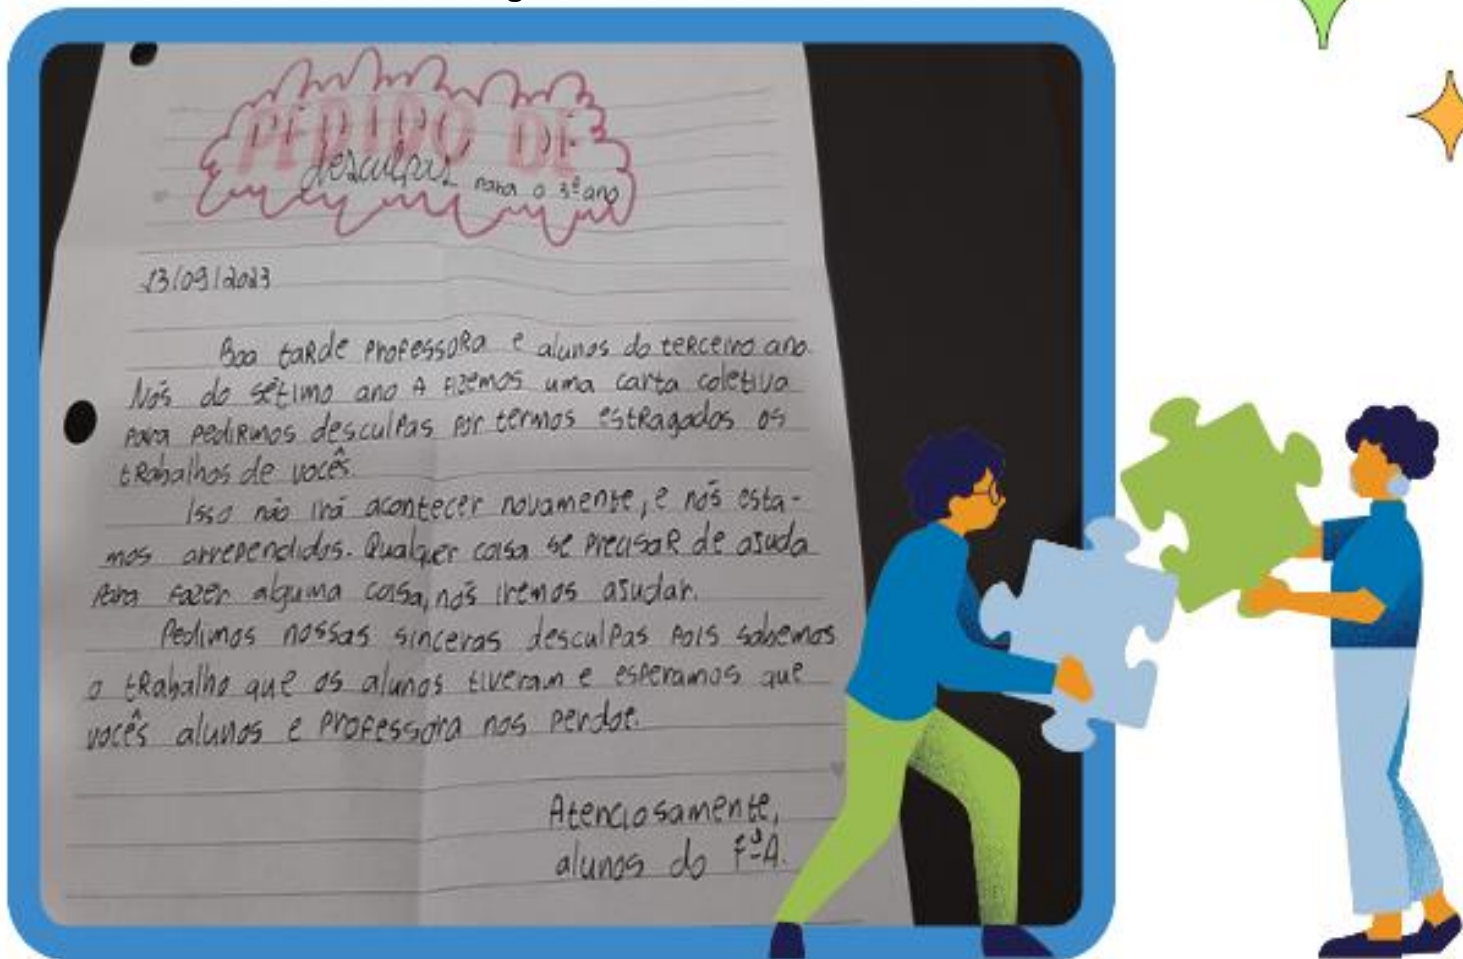 PEDIDO DE
desculpas para o 3º ano
13/09/2023
Boa tarde professora e alunos do terceiro ano.
Nós do sétimo ano A fizemos uma carta coletiva
para pedirmos desculpas por termos estragados os
trabalhos de vocês.
Isso não irá acontecer novamente, e nós esta-
mos arrependidos. Qualquer coisa se precisar de ajuda
para fazer alguma coisa, nós iremos ajudar.
Pedimos nossas sinceras desculpas pois sabemos
o trabalho que os alunos tiveram e esperamos que
vocês alunos e professora nos perdoe.
Atenciosamente,
alunos do 7ºA.